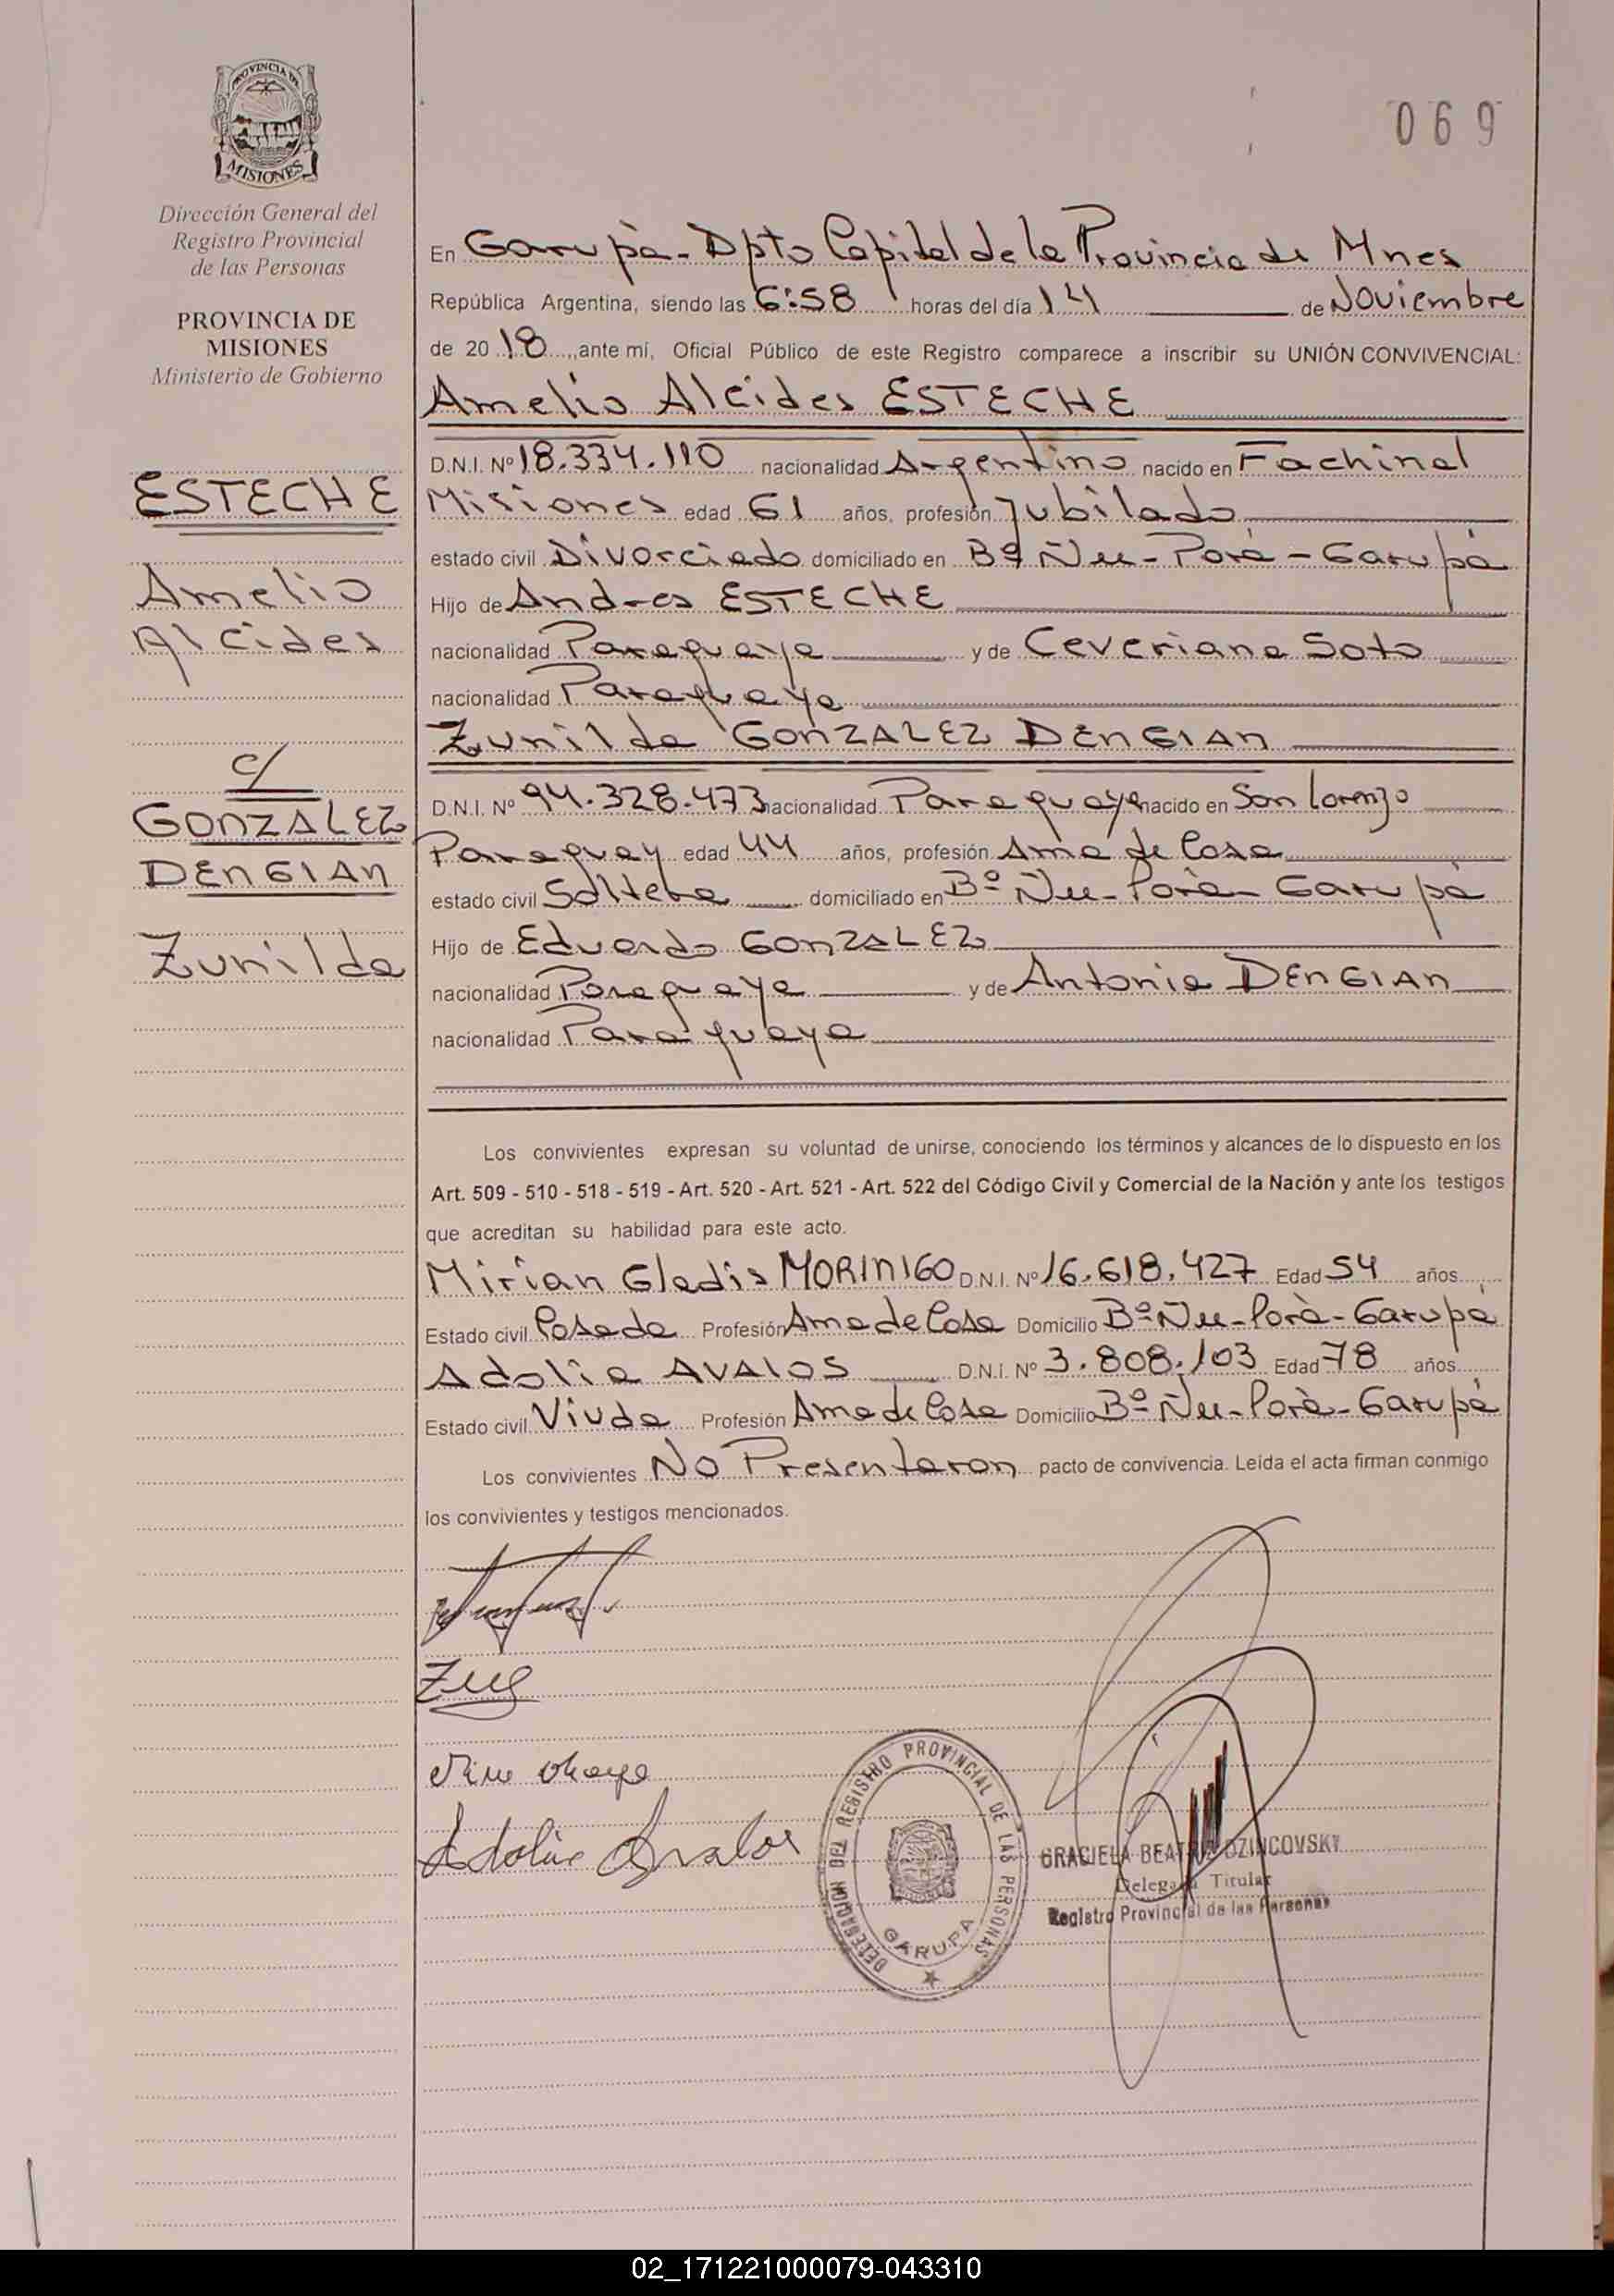 PROVINCIA DE
MISIONES
Dirección General del
Registro Provincial
de las Personas
PROVINCIA DE
MISIONES
Ministerio de Gobierno
ESTECHE
Amelio
Alcides
c/
GONZALEZ
DENGIAN
Zunilda
069
En Garupà - Dpto Capital de la Provincia de Mnes
República Argentina, siendo las 6:58 horas del día 14 de Noviembre
de 20 18, ante mí, Oficial Público de este Registro comparece a inscribir su UNIÓN CONVIVENCIAL:
Amelio Alcides ESTECHE
D.N.I. Nº 18.334.110 nacionalidad Argentino nacido en Fachinal
Misiones edad 61 años, profesión Jubilado
estado civil Divorciado domiciliado en Bº Ñu-Porà-Garupà
Hijo de Andres ESTECHE
nacionalidad Paraguaya y de Ceveriana Soto
nacionalidad Paraguaya
Zunilda GONZALEZ DENGIAN
D.N.I. Nº 94.328.473 nacionalidad Paraguaya nacido en San Lorenzo
Paraguay edad 44 años, profesión Ama de Casa
estado civil Soltera domiciliado en Bº Ñu-Porà-Garupà
Hijo de Eduardo GONZALEZ
nacionalidad Paraguaya y de Antonia DENGIAN
nacionalidad Paraguaya
Los convivientes expresan su voluntad de unirse, conociendo los términos y alcances de lo dispuesto en los
Art. 509 - 510 - 518 - 519 - Art. 520 - Art. 521 - Art. 522 del Código Civil y Comercial de la Nación y ante los testigos
que acreditan su habilidad para este acto.
Mirian Gladis MORINIGO D.N.I. Nº 16.618.427 Edad 54 años
Estado civil Casada Profesión Ama de Casa Domicilio Bº Ñu-Porà-Garupà
Adolia AVALOS D.N.I. Nº 3.808.103 Edad 78 años
Estado civil Viuda Profesión Ama de Casa Domicilio Bº Ñu-Porà-Garupà
Los convivientes No Presentaron pacto de convivencia. Leída el acta firman conmigo
los convivientes y testigos mencionados.
Adolia Avalos
DELEGACION DEL REGISTRO PROVINCIAL DE LAS PERSONAS
GARUPA
GRACIELA BEATRIZ DZINCOVSKY
Delegada Titular
Registro Provincial de las Personas
02_171221000079-043310